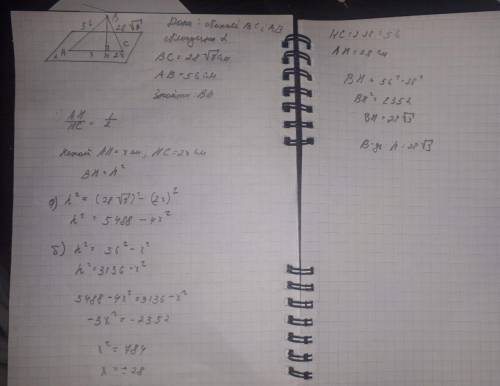 56
B
28 √7
A
x
H
2x
C
α
Дано: похилі BC, AB
площина α
BC = 28 √7 см
AB = 56 см
Знайти: BH
AH/HC = 1/2
Нехай AH = x см, HC = 2x см
BH = h²
а) h² = (28 √7)² - (2x)²
h² = 5488 - 4x²
б) h² = 56² - x²
h² = 3136 - x²
5488 - 4x² = 3136 - x²
-3x² = -2352
x² = 784
x = 28
HC = 2·28 = 56
AH = 28 см
BH = 56² - 28²
BH² = 2352
BH = 28√3
В-дь: h = 28√3